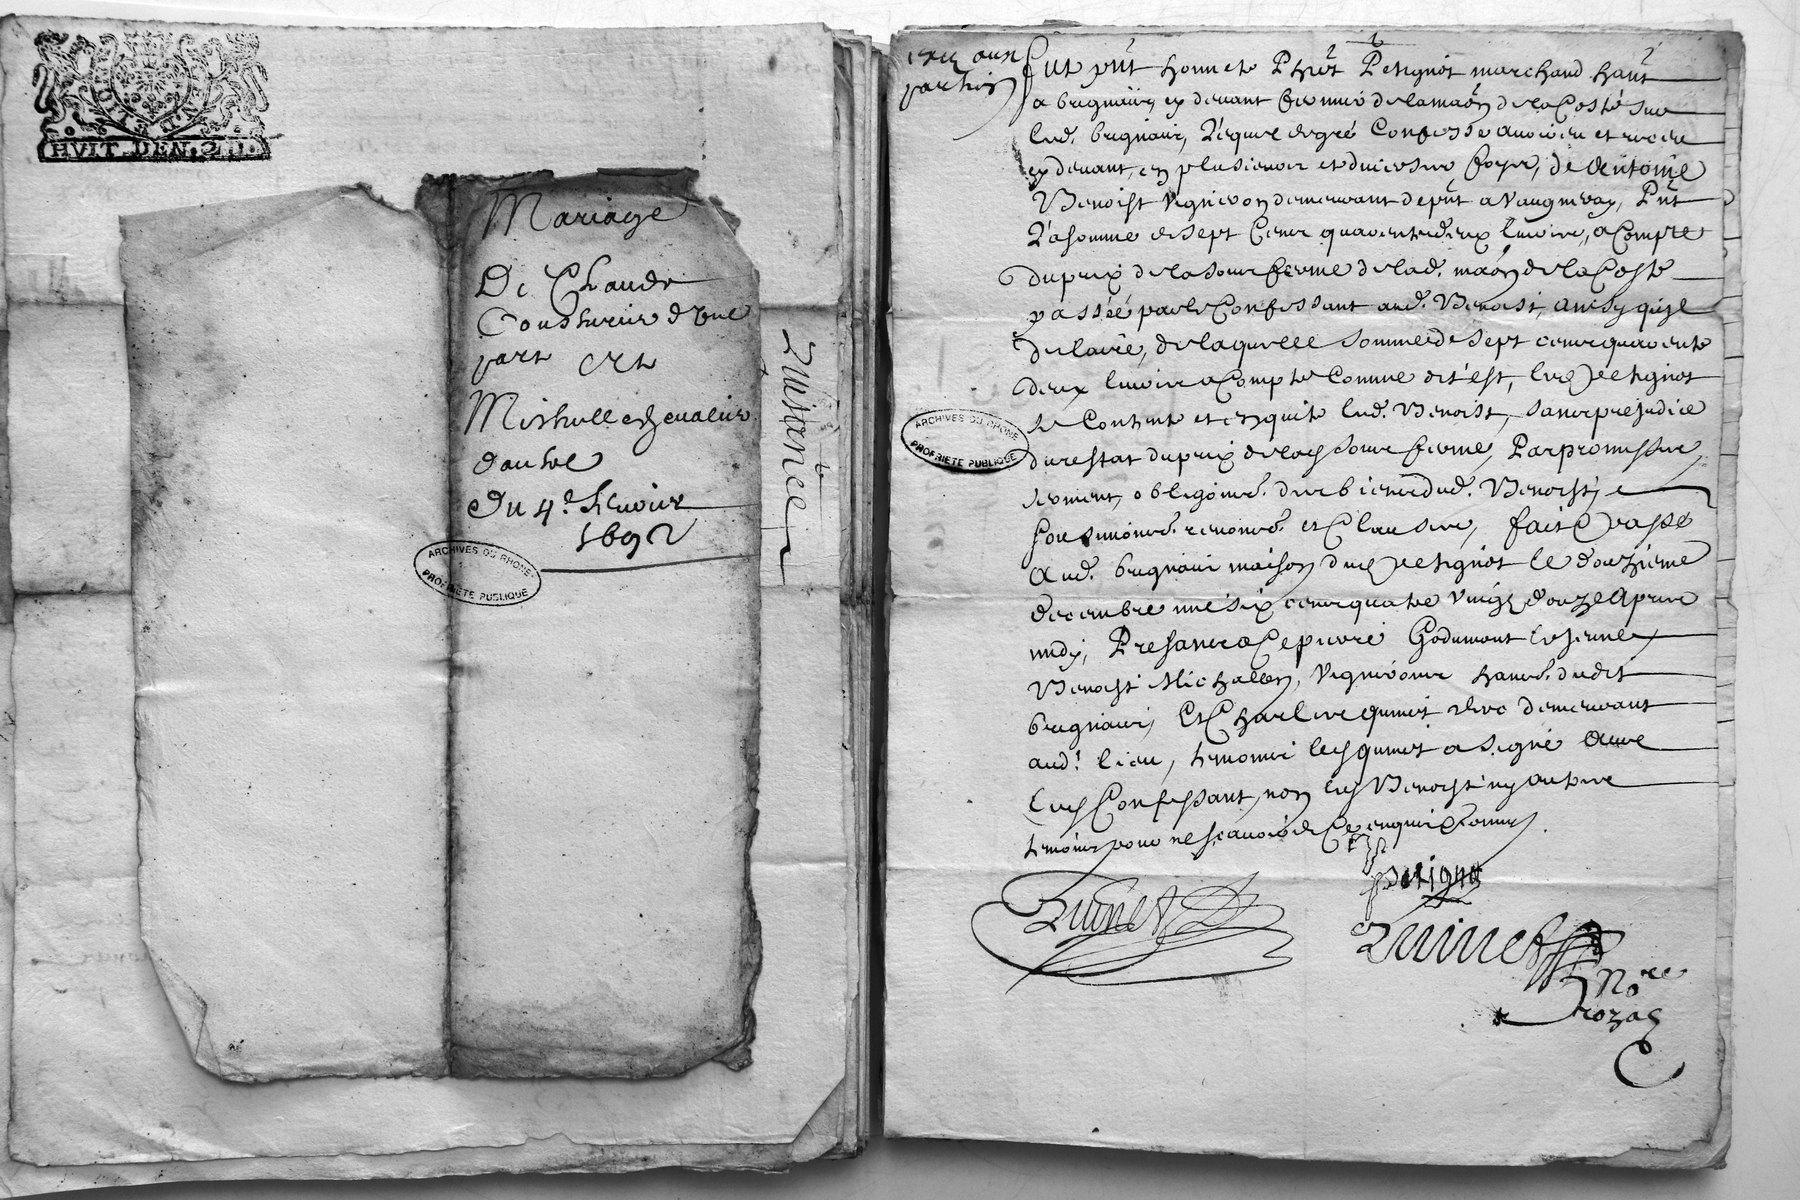 HVIT DEN. 2 J.
Mariage
De Claude
Cousturier d'Vne
part Et
Mishelle chevalier
d'autre
Du 4.e fevrier
1692
ARCHIVES DU RHONE
PROPRIÉTÉ PUBLIQUE
Quitance
aux
parties
Fut pnt honneste Petignot marchand hant
a brignais cy devant fermier de la maon de la Coste sur
led. brignais, Lequel de gré Confesse avoir eu et receu
cy devant, en plusieurs et diverses foys, de Antoine
Benoist vigneron demeurant de pnt a Vaugneray, Pnt
La somme de sept Cens quarente deux livres, a Compte
du prix de la sous ferme de lad. maon de la Coste
passéé par le Confessant aud. Benoist, ainsy qu'il
declaire, de laquelle somme de sept cens quarente
deux livres a Compte Comme dit est, led Petignot
se Contente et en quite led. Benoist, sans prejudice
du restat du prix de lad sous ferme, Par promesse
serment, obligaons. des biens dud. Benoist,
soumions. renons. et Clauses, fait et Passé
Aud. brignais maison dud Petignot le douzieme
decembre mil six cens quatre vingt douze Apres
midy, Presans a Ce pierre Godemont
Benoist Michallon, vignerons hans. dudit
brignais, Et Charles quinet clerc demeurant
aud. lieu, temoins led quinet a signé Avec
led Confessant, non led Benoist ny autres
temoins pour ne scavoir de Ce enquis et sommés
petignot
Quinet
Quinet
Nore
Royal
ARCHIVES DU RHONE
PROPRIÉTÉ PUBLIQUE